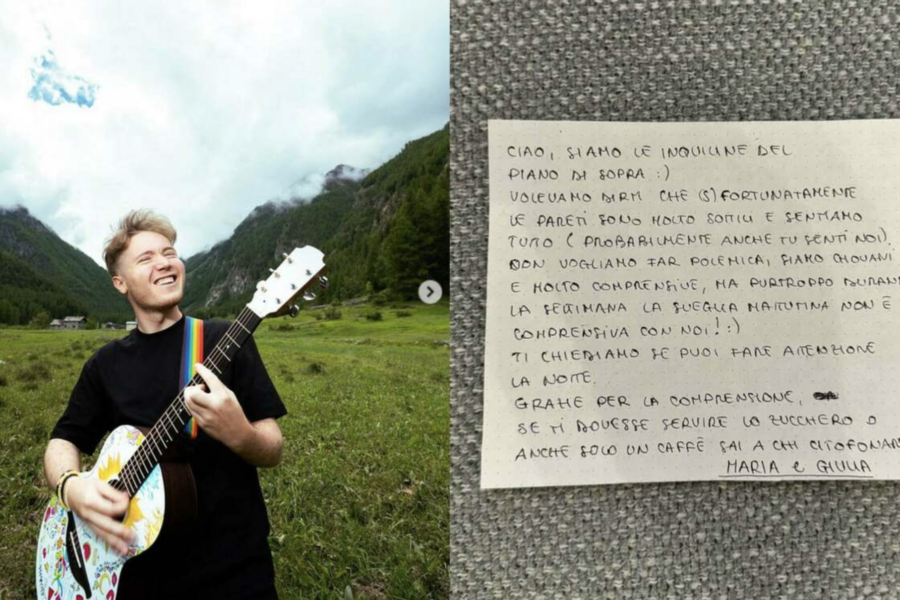 CIAO, SIAMO LE INQUILINE DEL
PIANO DI SOPRA :)
VOLEVAMO DIRTI CHE (S)FORTUNATAMENTE
LE PARETI SONO MOLTO SOTTILI E SENTIAMO
TUTTO (PROBABILMENTE ANCHE TU SENTI NOI).
NON VOGLIAMO FAR POLEMICA, SIAMO GIOVANI
E MOLTO COMPRENSIVE, MA PURTROPPO DURANT
LA SETTIMANA LA SVEGLIA MATTUTINA NON È
COMPRENSIVA CON NOI! :)
TI CHIEDIAMO SE PUOI FARE ATTENZIONE
LA NOTTE.
GRAZIE PER LA COMPRENSIONE,
SE TI DOVESSE SERVIRE LO ZUCCHERO O
ANCHE SOLO UN CAFFÈ SAI A CHI CITOFONAR
MARIA e GIULIA